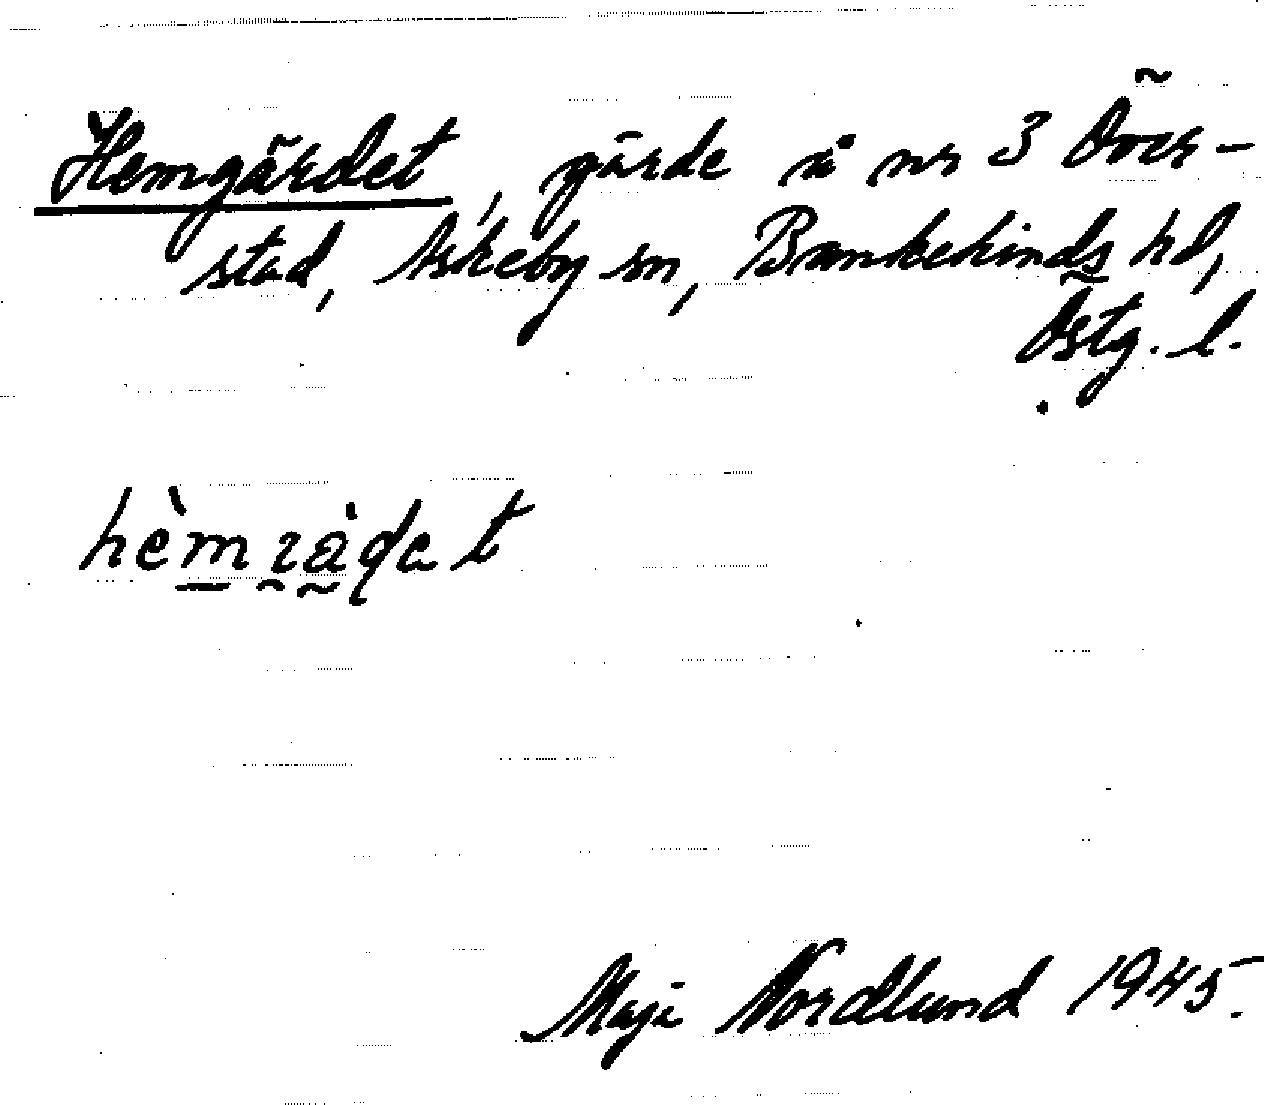 Hemgärdet, gärde å nr 3 Över-
stad, Askeby sn, Bankekinds hd,
Östg. l.
Maja Nordlund 1945.